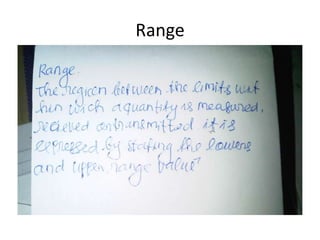 Range
Range.
The region between the limits wit
hin wich a quantity is measured,
recieved or transmitted it is
expressed by stating the lowers
and upper, range value"